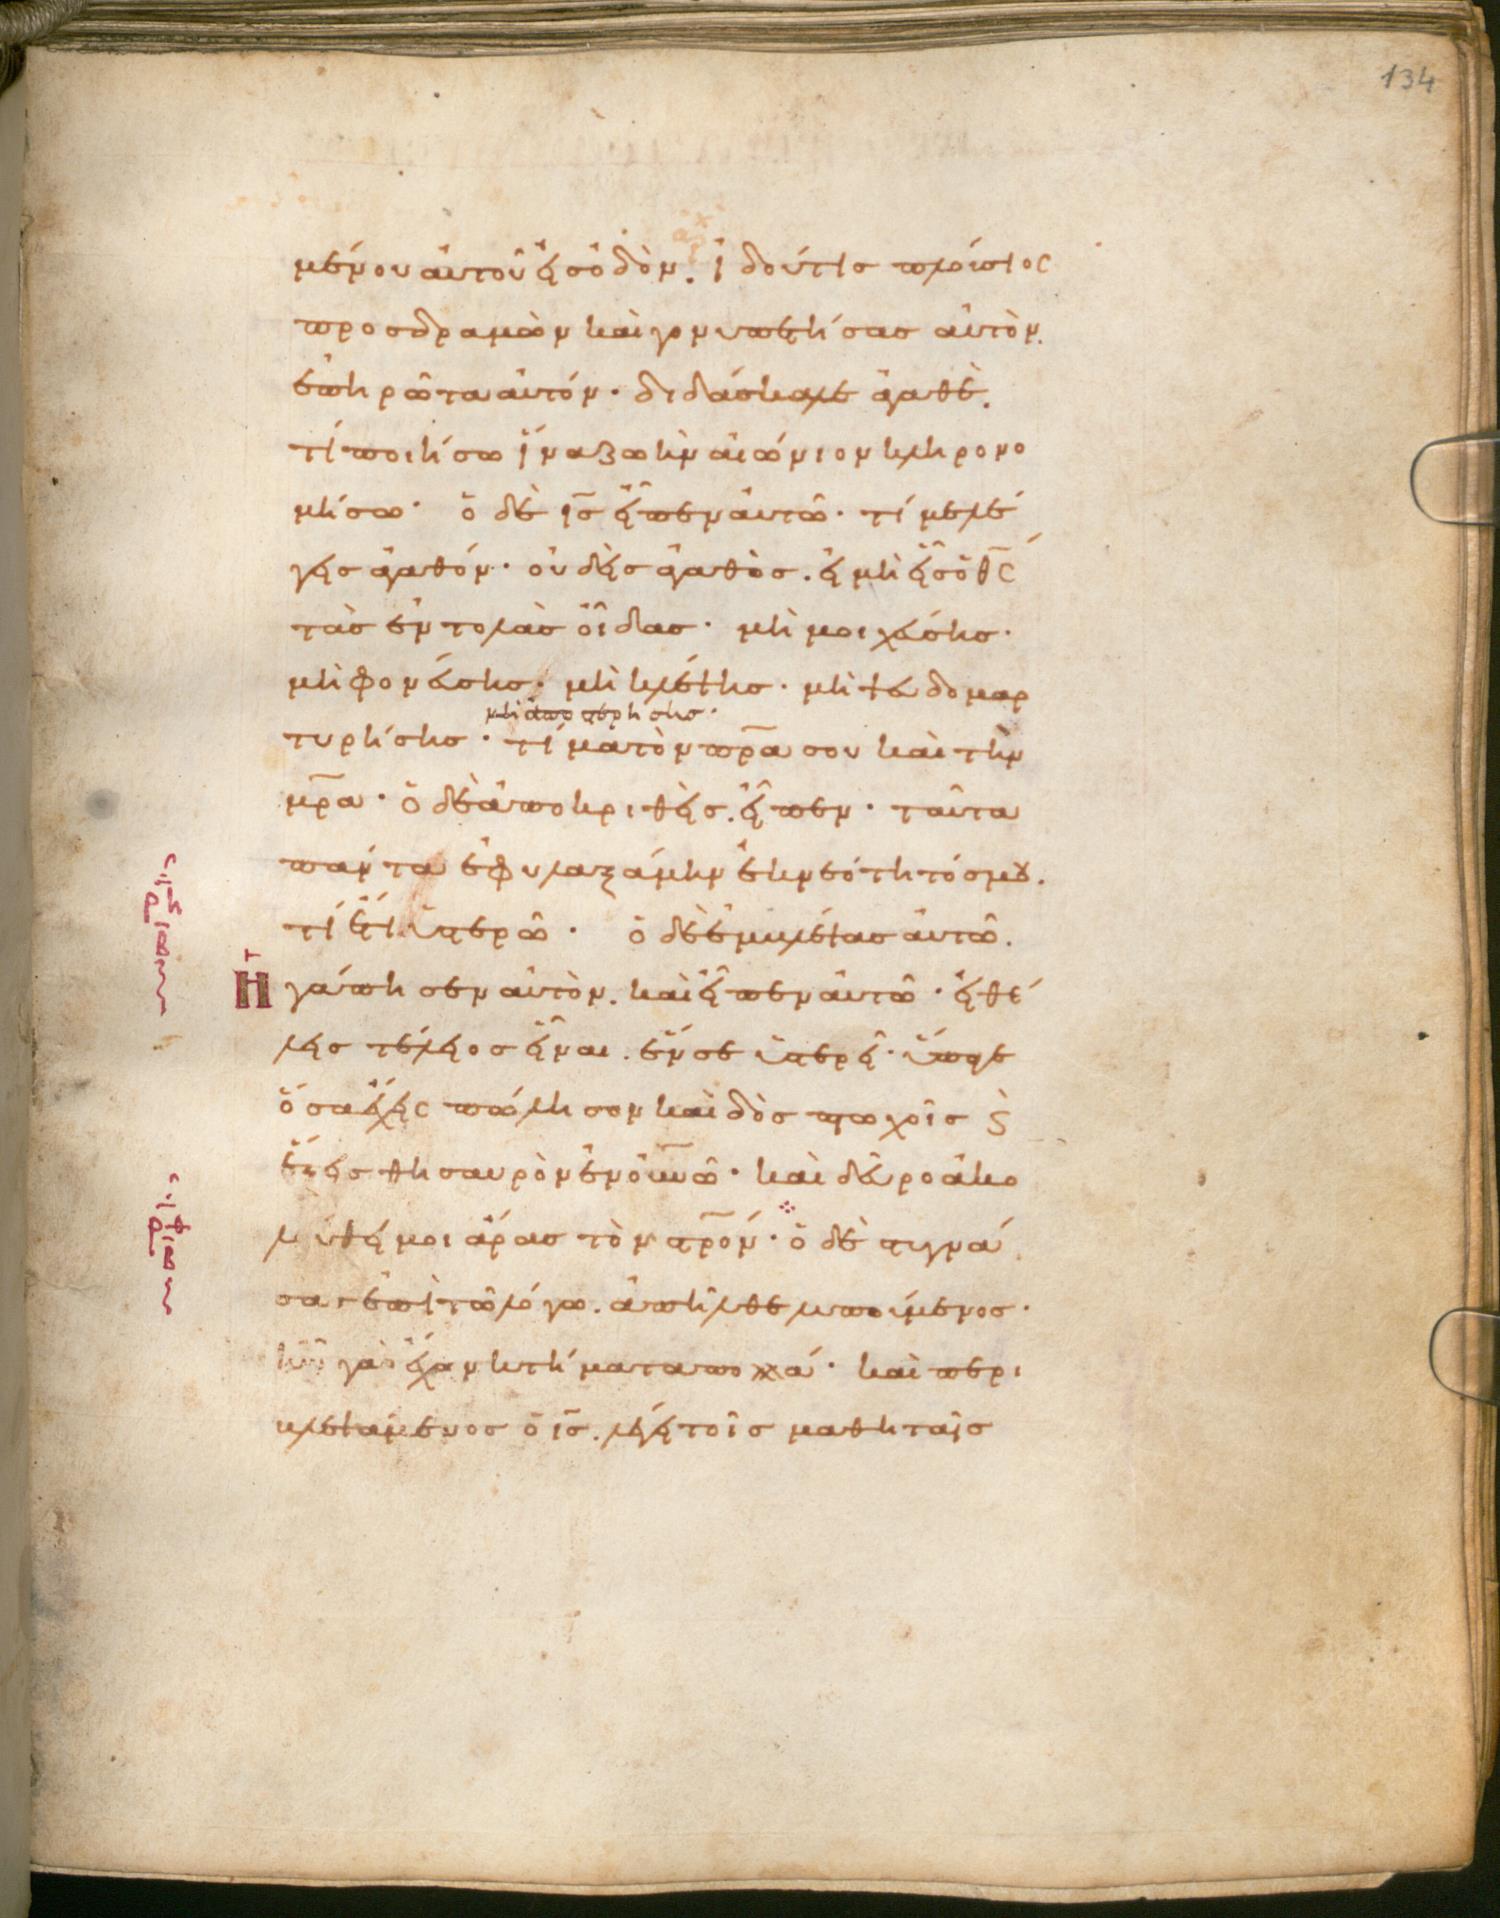 134
μένου αὐτοῦ εἰς ὁδὸν. ἰδού τις πλούσιος
προσδραμὼν καὶ γονυπετήσας αὐτὸν.
ἐπηρώτα αὐτόν· διδάσκαλε ἀγαθὲ.
τί ποιήσω ἵνα ζωὴν αἰώνιον κληρονο
μήσω· ὁ δὲ ι̅ς̅ εἶπεν αὐτῶ· τί με λέ
γεις ἀγαθόν· οὐδεὶς ἀγαθὸς. εἰ μὴ εἷς ὁ θ̅ς̅
τὰς ἐντολὰς οἶδας· μὴ μοιχεύσης·
μὴ φονεύσης· μὴ κλέψης· μὴ ψευδομαρ
μὴ ἀποστερήσης·
τυρήσης· τίμα τὸν π̅ρ̅α σου καὶ τὴν
μ̅ρ̅α· ὁ δὲ ἀποκριθεὶς. εἶπεν· ταῦτα
πάντα ἐφυλαξάμην ἐκ νεότητός μου.
τί ἔτι ὑστερῶ· ὁ δὲ ἐμβλέψας αὐτῶ.
Ηγάπησεν αὐτὸν. καὶ εἶπεν αὐτῶ· εἰ θέ
λεις τέλειος εἶναι. ἕν σε ὑστερεῖ· ὕπαγε
ὅσα ἔχεις πώλησον καὶ δὸς πτωχοῖς ϗ
ἕξεις θησαυρὸν ἐν ο̅υ̅ν̅ῶ· καὶ δεῦρο ἀκο
λούθει μοι ἄρας τὸν σ̅τ̅ρ̅ό̅ν· ὁ δὲ στυγνά
σας ἐπὶ τῶ λόγω. ἀπῆλθε λυπούμενος·
ἦν γὰρ ἔχων κτήματα πολλά· καὶ περι
βλεψάμενος ὁ ι̅ς̅. λέγει τοῖς μαθηταῖς